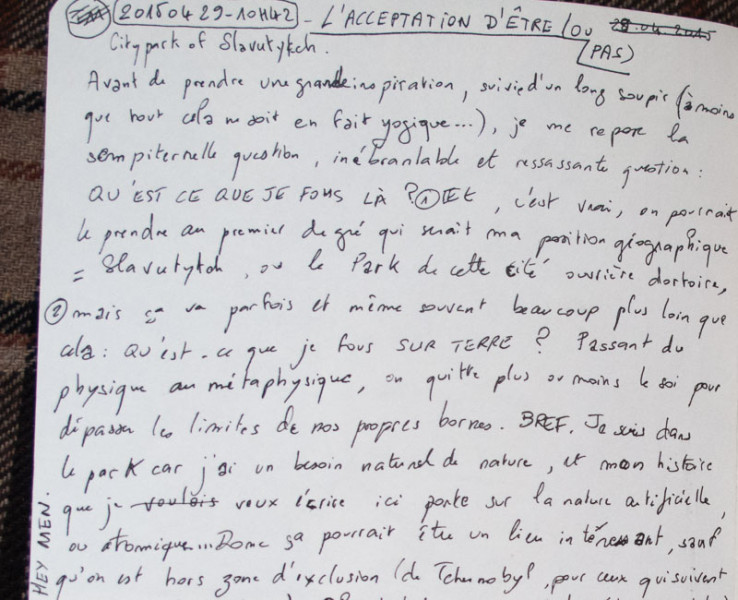 20150429-10H42 - L'ACCEPTATION D'ÊTRE (OU 29.04.2015
City park of Slavutytch. PAS)
Avant de prendre une grande inspiration, suivie d'un long soupir (à moins
que tout cela ne soit en fait yogique...), je me repose la
sempiternelle question, inébranlable et ressassante question :
QU'EST CE QUE JE FOUS LÀ ? ① Et, c'est vrai, on pourrait
le prendre au premier degré qui serait ma position géographique
= Slavutytch, ou le Park de cette cité ouvrière dortoire,
② mais ça va parfois et même souvent beaucoup plus loin que
cela : QU'EST-ce que je fous SUR TERRE ? Passant du
physique au métaphysique, on quitte plus ou moins le soi pour
dépasser les limites de nos propres bornes. BREF. Je suis dans
le parK car j'ai un besoin naturel de nature, et mon histoire
que je voulais veux écrire ici porte sur la nature artificielle,
ou atomique... Donc ça pourrait être un lieu intéressant, sauf
qu'on est hors zone d'exclusion (de Tchernobyl, pour ceux qui suivent
HEY MEN.